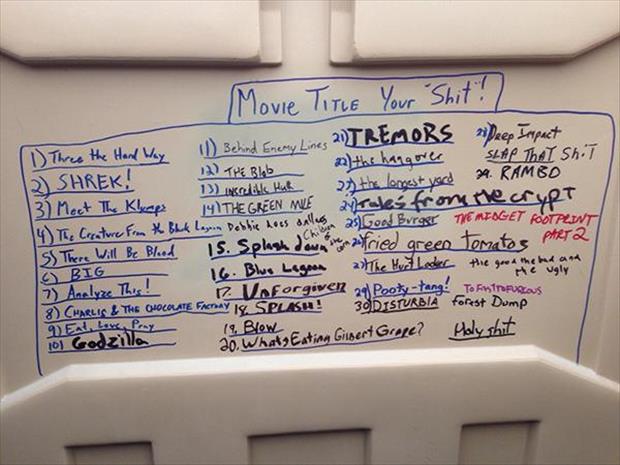 Movie Title Your "Shit"!
1) Three the Hard Way
2) SHREK!
3) Meet The Klumps
4) The Creature From the Black Lagoon
5) There Will Be Blood
6) BIG
7) Analyze This!
8) CHARLIE & THE CHOCOLATE FACTORY
9) Eat, Love, Pray
10) Godzilla
11) Behind Enemy Lines
12) THE Blob
13) INCREDIBLE Hulk
14) THE GREEN MILE
Debbie does dallas
15. Splash down
Children of the corn
16. Blue Lagoon
17. UNForgiven
18. SPLASH!
19. Blow
20. Whats Eating Gilbert Grape?
21) TREMORS
22) the hangover
23) the longest yard
24) tales from the crypt
25) Good Burger
26) fried green tomatos
27) The Hurt Locker
29) Pooty-tang!
30) DISTURBIA
28) Deep Impact
SLAP THAT Sh.T
29. RAMBO
THE MIDGET FOOTPRINT
PART 2
the good the bad and
the ugly
forest Dump
Holy shit